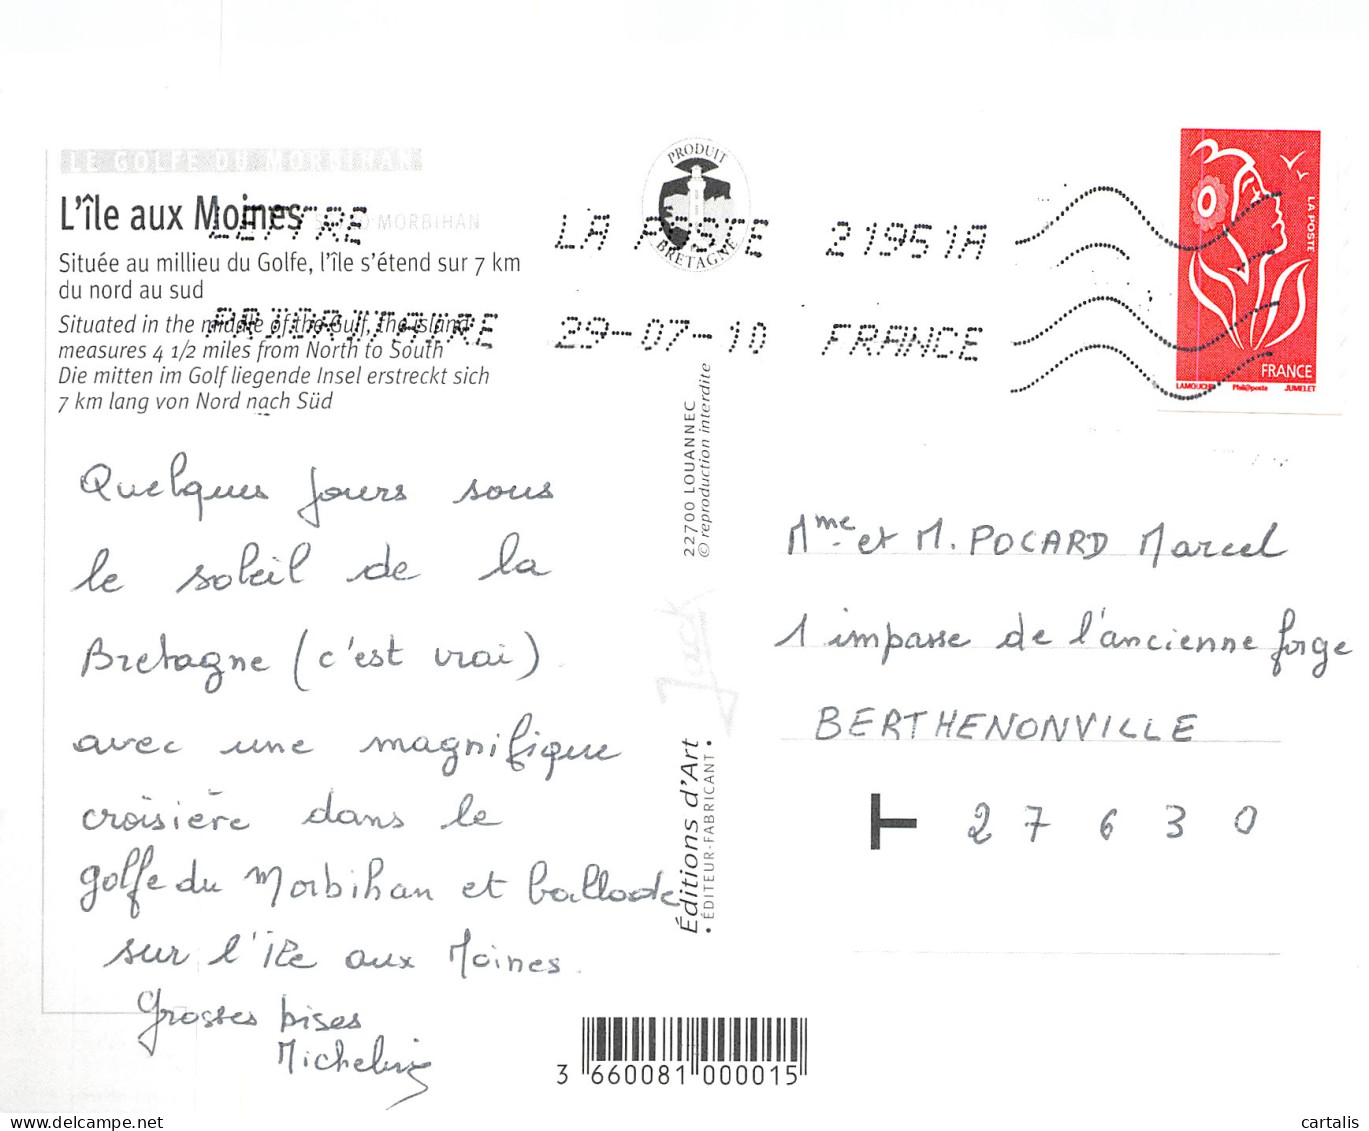 LE GOLFE DU MORBIHAN
L'île aux Moines 56780 MORBIHAN
Située au millieu du Golfe, l'île s'étend sur 7 km
du nord au sud
Situated in the middle of the Gulf, the island
measures 4 1/2 miles from North to South
Die mitten im Golf liegende Insel erstreckt sich
7 km lang von Nord nach Süd
LETTRE
PRIORITAIRE
LA POSTE 21951A
29-07-10 FRANCE
PRODUIT
BRETAGNE
LA POSTE
FRANCE
LAMOUCHE Phil@poste JUMELET
Quelques jours sous
le soleil de la
Bretagne (c'est vrai)
avec une magnifique
croisière dans le
golfe du Morbihan et ballade
sur l'île aux Moines.
Grosses bises
22700 LOUANNEC
© reproduction interdite
Jack
Éditions d'Art
• ÉDITEUR-FABRICANT •
Mme et M. POCARD Marcel
1 impasse de l'ancienne forge
BERTHENONVILLE
T 27630
3 660081 000015
cartalis